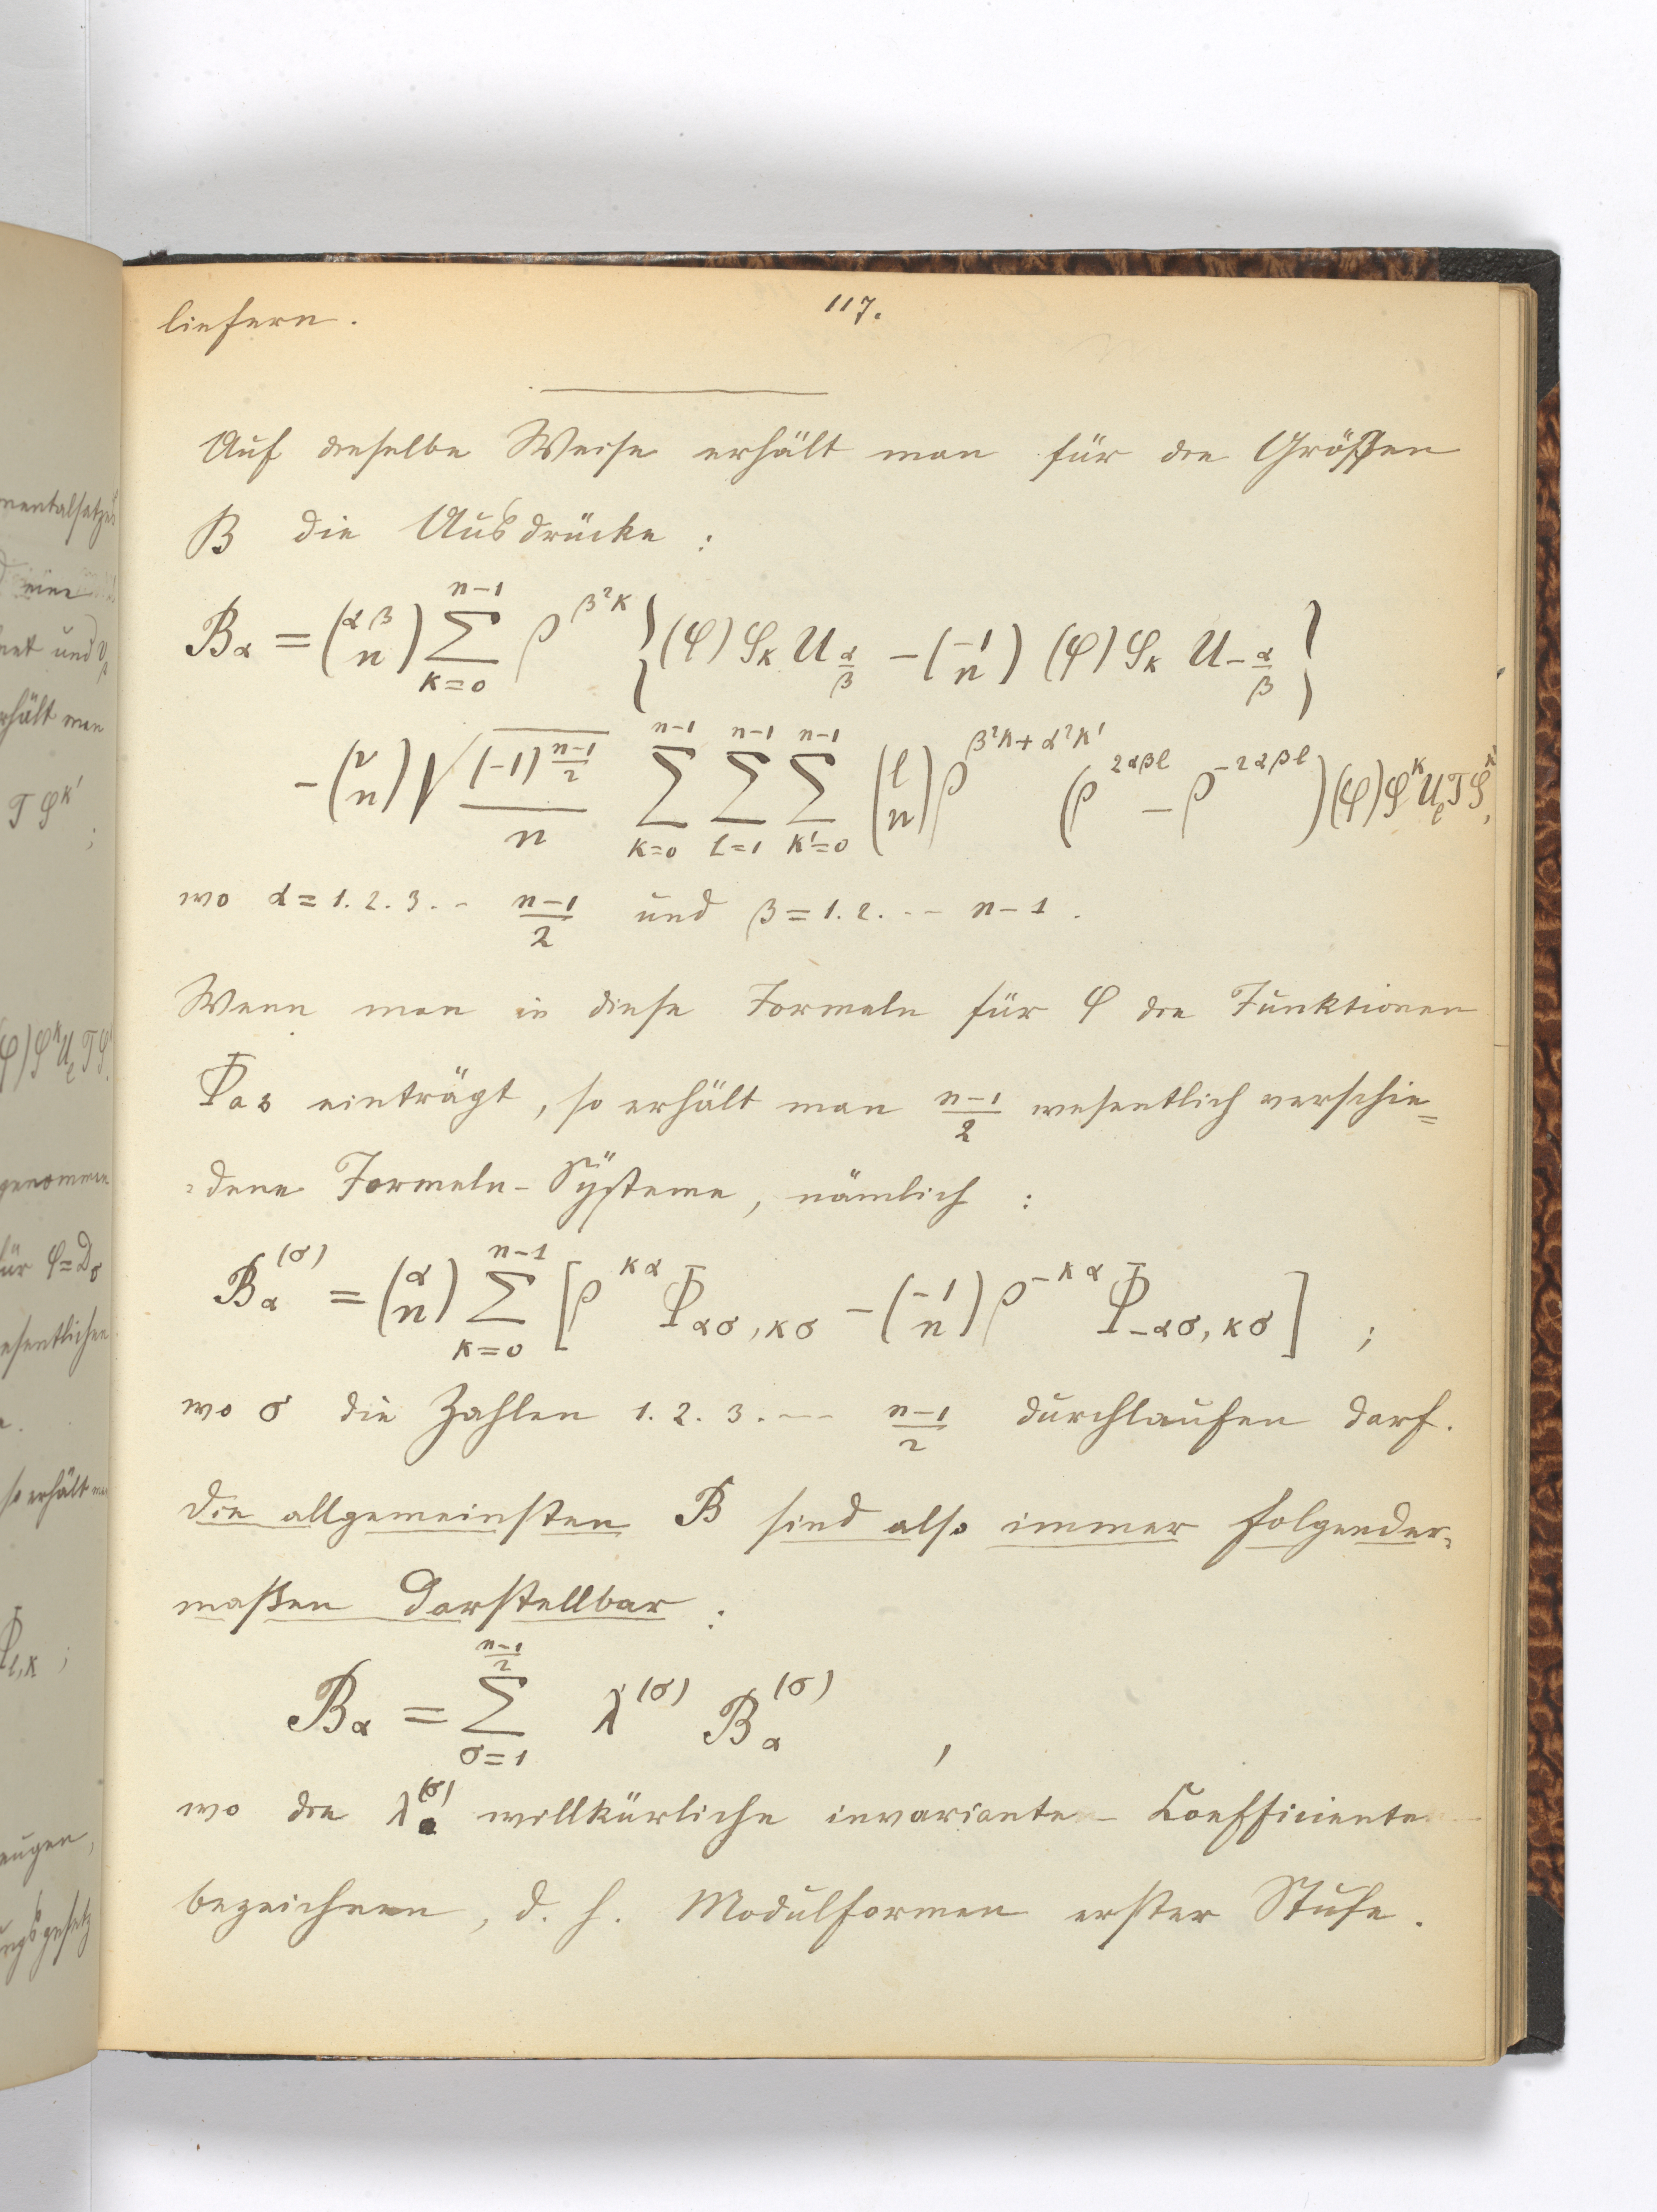 117.
liefern.
Auf dieselbe Weise erhält man für die Größen
B die Ausdrücke :
B_α = (αβ/n) ∑_{κ=0}^{n-1} ρ^{β²κ} {(φ) S_κ U_{α/β} − (−1/n) (φ) S_κ U_{−α/β}}
− (ν/n) √((-1)^{(n-1)/2}) / n ∑_{κ=0}^{n-1} ∑_{l=1}^{n-1} ∑_{κ'=0}^{n-1} (l/n) ρ^{β²κ+α²κ'} (ρ^{2αβl} − ρ^{-2αβl}) (φ) S^κ U_l T S^{κ'},
wo α = 1. 2. 3. -- (n-1)/2 und β = 1. 2. --- n-1.
Wenn man in diese Formeln für φ die Funktionen
einträgt, so erhält man (n-1)/2 wesentlich verschie=
=dene Formeln-Systeme, nämlich :
B_α^{(σ)} = (α/n) ∑_{κ=0}^{n-1} [ρ^{κα} Φ_{ασ,κσ} − (−1/n) ρ^{-κα} Φ_{−ασ,κσ}] ;
wo σ die Zahlen 1. 2. 3. --- (n-1)/2 durchlaufen darf.
Die allgemeinsten B sind also immer folgender=
maßen Darstellbar :
B_α = ∑_{σ=1}^{(n-1)/2} λ^{(σ)} B_α^{(σ)} ,
wo die λ^{(σ)} willkürliche invariante Coefficienten
bezeichnen, d. h. Modulformen erster Stufe.